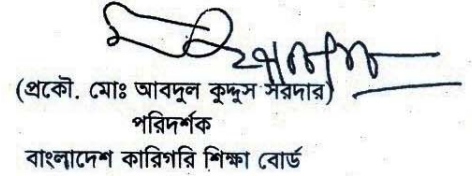 (প্রকৌ. মোঃ আবদুল কুদ্দুস সরদার)
পরিদর্শক
বাংলাদেশ কারিগরি শিক্ষা বোর্ড